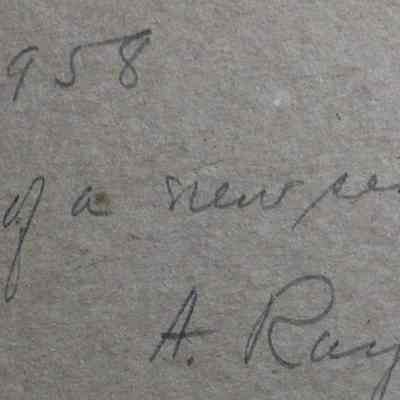 958
of a new se
A. Ray